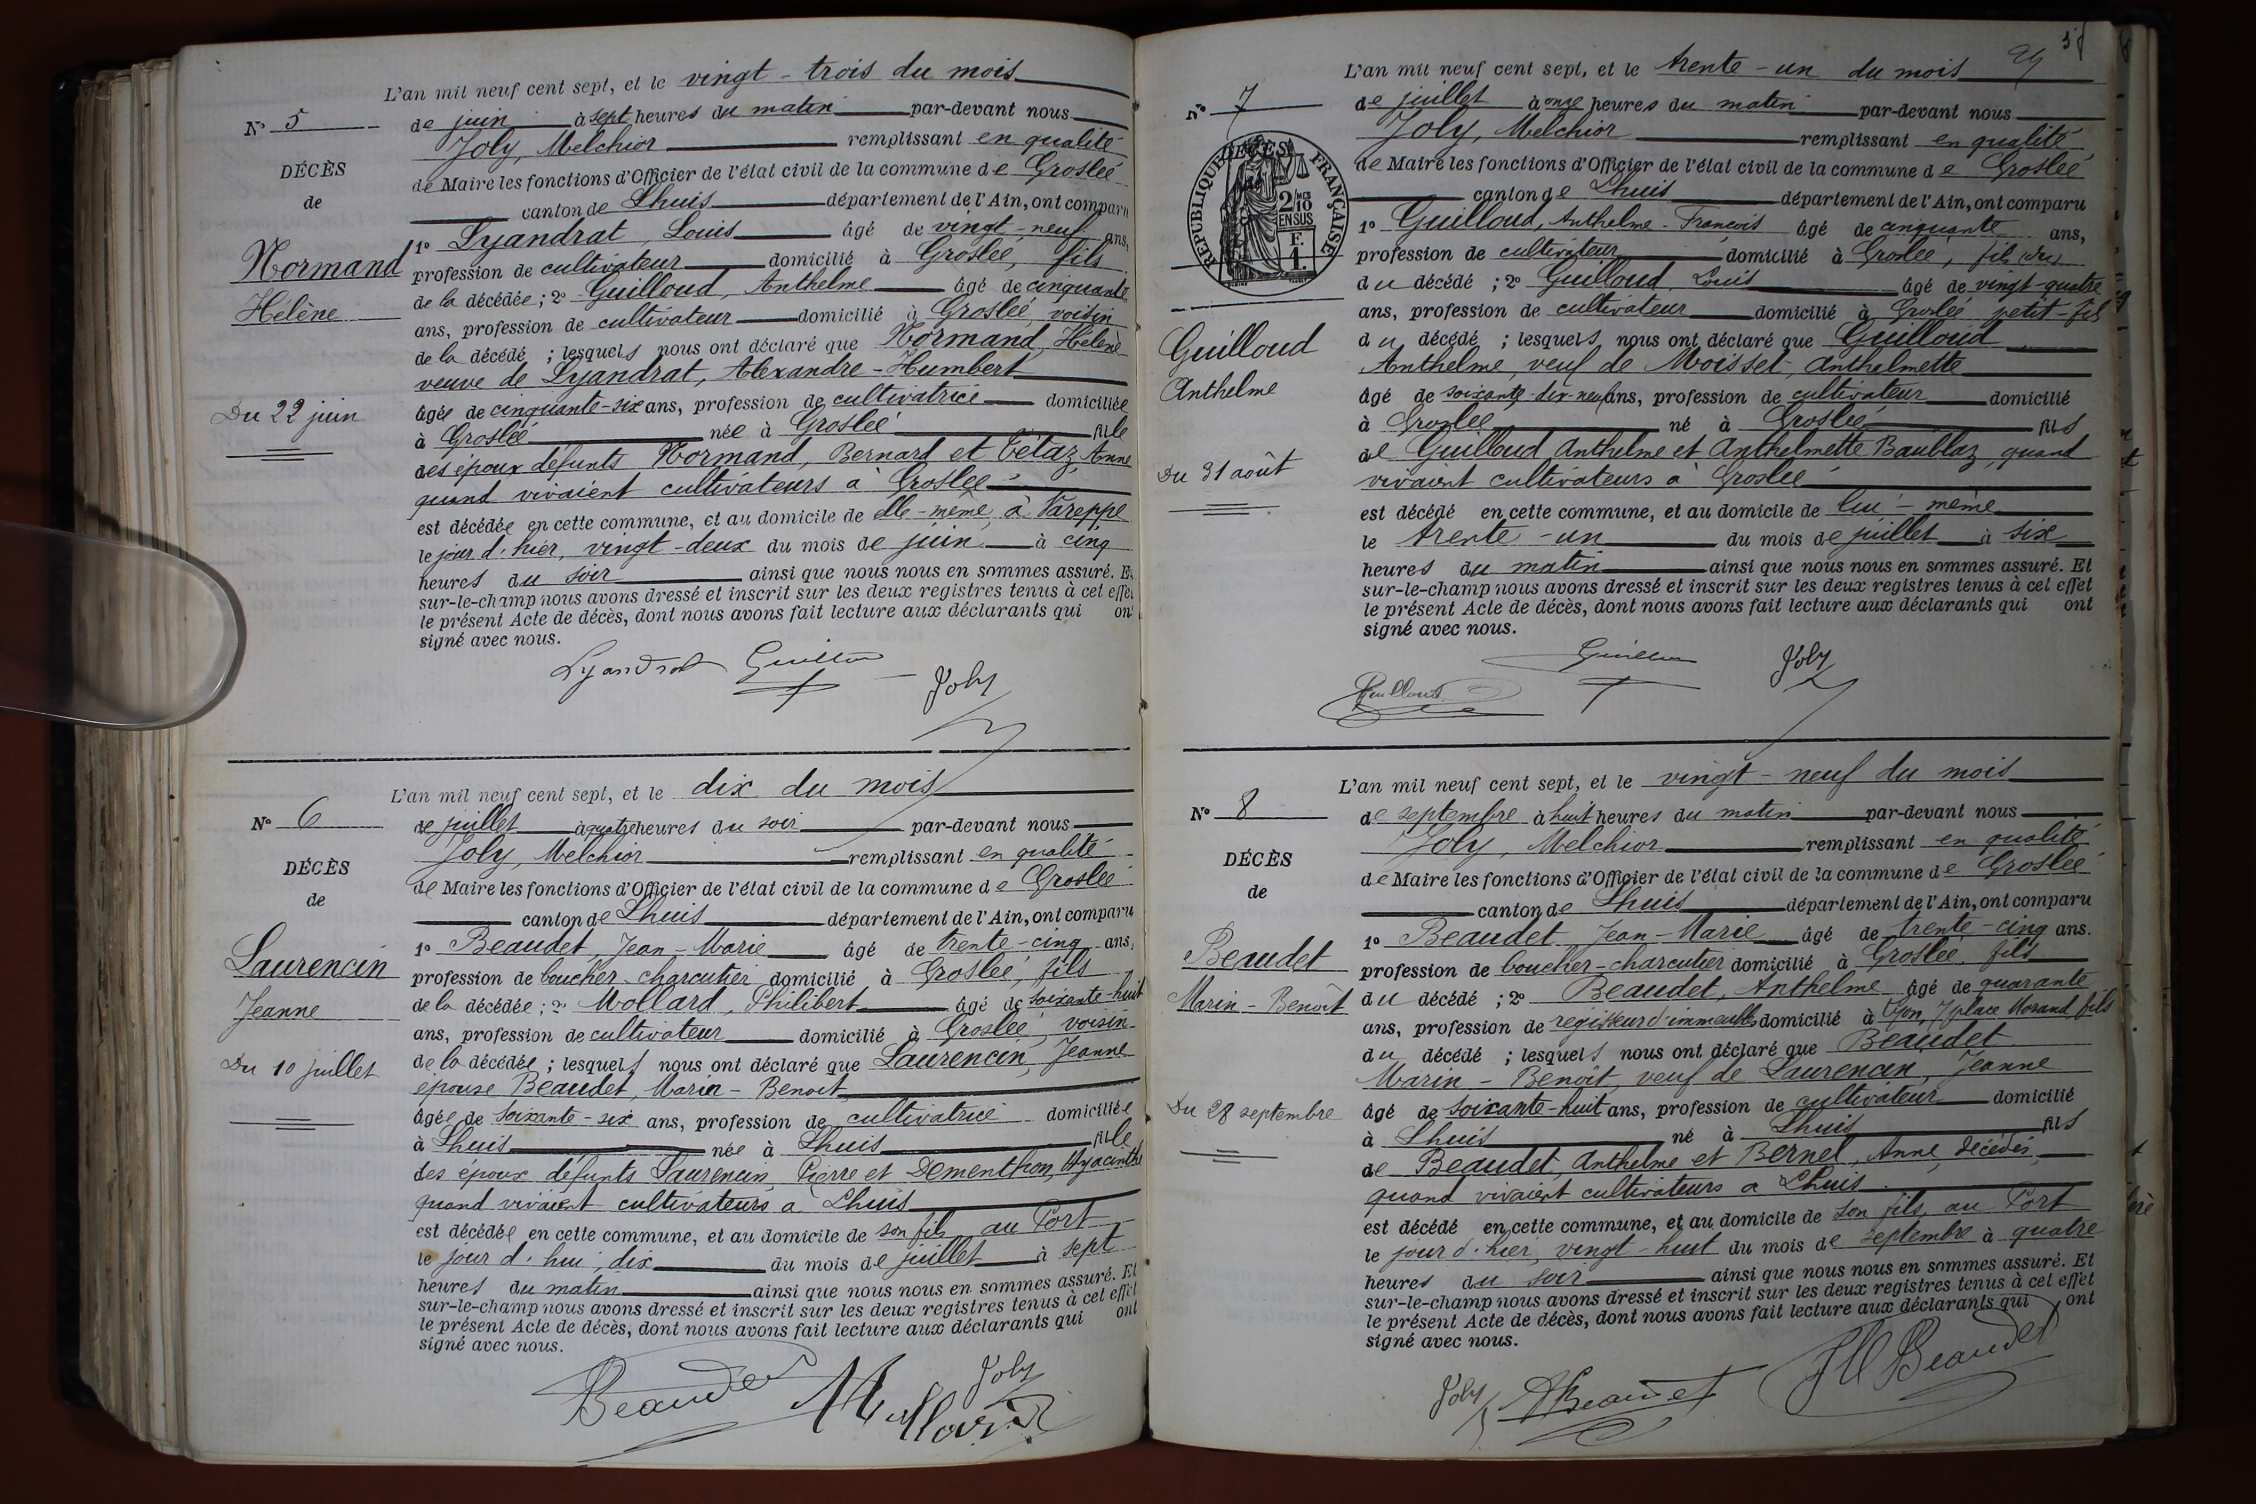 L'an mil neuf cent sept, et le vingt-trois du mois
N° 5
de juin à sept heures du matin par-devant nous
Joly, Melchior remplissant en qualité
DÉCÈS
de Maire les fonctions d'Officier de l'état civil de la commune de Groslée
de
canton de Lhuis département de l'Ain, ont comparu
1° Lyandrat, Louis âgé de vingt-neuf ans,
Normand
profession de cultivateur domicilié à Groslée, fils
Hélène
de la décédée ; 2° Guilloud, Anthelme âgé de cinquante
ans, profession de cultivateur domicilié à Groslée, voisin
de la décédé ; lesquels nous ont déclaré que Normand, Hélène
veuve de Lyandrat, Alexandre-Humbert
Du 22 juin
âgée de cinquante-six ans, profession de cultivatrice domiciliée
à Groslée née à Groslée fille
des époux défunts Normand, Bernard et Tétaz, Anne
quand vivaient cultivateurs à Groslée
est décédée en cette commune, et au domicile de elle-même, à Vareppe
le jour d'hier, vingt-deux du mois de juin à cinq
heures du soir ainsi que nous nous en sommes assuré. Et
sur-le-champ nous avons dressé et inscrit sur les deux registres tenus à cet effet
le présent Acte de décès, dont nous avons fait lecture aux déclarants qui ont
signé avec nous.
Lyandrat Guilloud Joly
L'an mil neuf cent sept, et le dix du mois
N° 6
de juillet à quatre heures du soir par-devant nous
Joly, Melchior remplissant en qualité
DÉCÈS
de Maire les fonctions d'Officier de l'état civil de la commune de Groslée
de
canton de Lhuis département de l'Ain, ont comparu
1° Beaudet, Jean-Marie âgé de trente-cinq ans,
Laurencin
profession de boucher-charcutier domicilié à Groslée, fils
Jeanne
de la décédée ; 2° Mollard, Philibert âgé de soixante-huit
ans, profession de cultivateur domicilié à Groslée, voisin
Du 10 juillet
de la décédée ; lesquels nous ont déclaré que Laurencin, Jeanne
épouse Beaudet, Marin-Benoit
âgée de soixante-six ans, profession de cultivatrice domiciliée
à Lhuis née à Lhuis fille
des époux défunts Laurencin, Pierre et Dementhon, Hyacinthe
quand vivaient cultivateurs à Lhuis
est décédée en cette commune, et au domicile de son fils, au Port
le jour d'hui, dix du mois de juillet à sept
heures du matin ainsi que nous nous en sommes assuré. Et
sur-le-champ nous avons dressé et inscrit sur les deux registres tenus à cet effet
le présent Acte de décès, dont nous avons fait lecture aux déclarants qui ont
signé avec nous.
Beaudet Mollard Joly
L'an mil neuf cent sept, et le trente-un du mois
N° 7
de juillet à onze heures du matin par-devant nous
Joly, Melchior remplissant en qualité
de Maire les fonctions d'Officier de l'état civil de la commune de Groslée
DÉCÈS
RÉPUBLIQUE FRANÇAISE
2/10 EN SUS
F. 1.
canton de Lhuis département de l'Ain, ont comparu
1° Guilloud, Anthelme-François âgé de cinquante ans,
profession de cultivateur domicilié à Groslée, fils (du)
du décédé ; 2° Guilloud, Louis âgé de vingt-quatre
ans, profession de cultivateur domicilié à Groslée petit-fils
Guilloud
Anthelme
du décédé ; lesquels nous ont déclaré que Guilloud
Anthelme, veuf de Moisset, Anthelmette
âgé de soixante-dix-neuf ans, profession de cultivateur domicilié
à Groslée né à Groslée fils
de Guilloud Anthelme et Anthelmette Baublaz, quand
Du 31 août
vivaient cultivateurs à Groslée
est décédé en cette commune, et au domicile de lui-même
le trente-un du mois de juillet à six
heures du matin ainsi que nous nous en sommes assuré. Et
sur-le-champ nous avons dressé et inscrit sur les deux registres tenus à cet effet
le présent Acte de décès, dont nous avons fait lecture aux déclarants qui ont
signé avec nous.
Guilloud Guilloud Joly
L'an mil neuf cent sept, et le vingt-neuf du mois
N° 8
de septembre à huit heures du matin par-devant nous
Joly, Melchior remplissant en qualité
DÉCÈS
de Maire les fonctions d'Officier de l'état civil de la commune de Groslée
de
canton de Lhuis département de l'Ain, ont comparu
1° Beaudet Jean-Marie âgé de trente-cinq ans.
Beaudet
profession de boucher-charcutier domicilié à Groslée, fils
Marin-Benoît
du décédé ; 2° Beaudet, Anthelme âgé de quarante
ans, profession de régisseur d'immeubles domicilié à Lyon, 7 place Morand, fils
du décédé ; lesquels nous ont déclaré que Beaudet
Marin-Benoît, veuf de Laurencin, Jeanne
Du 28 septembre
âgé de soixante-huit ans, profession de cultivateur domicilié
à Lhuis né à Lhuis fils
de Beaudet, Anthelme et Bernel, Anne, décédés,
quand vivaient cultivateurs à Lhuis
est décédé en cette commune, et au domicile de son fils, au Port
le jour d'hier, vingt-huit du mois de septembre à quatre
heures du soir ainsi que nous nous en sommes assuré. Et
sur-le-champ nous avons dressé et inscrit sur les deux registres tenus à cet effet
le présent Acte de décès, dont nous avons fait lecture aux déclarants qui ont
signé avec nous.
Joly ABeaudet JM Beaudet